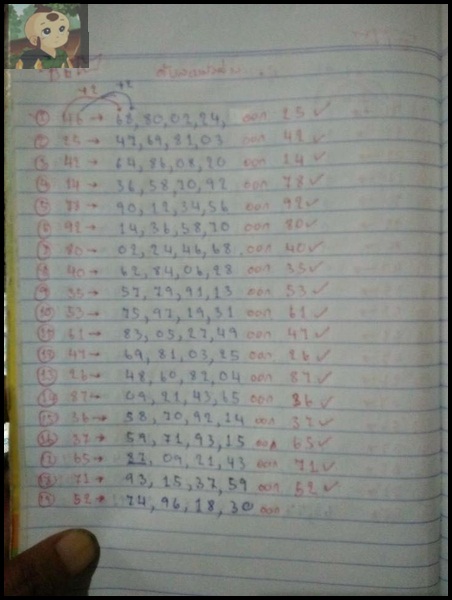 +2 +2
① 46 → 68, 80, 02, 24, ออก 25 ✓
② 25 → 47, 69, 81, 03 ออก 42 ✓
③ 42 → 64, 86, 08, 20 ออก 14 ✓
④ 14 → 36, 58, 70, 92 ออก 78 ✓
⑤ 78 → 90, 12, 34, 56 ออก 92 ✓
⑥ 92 → 14, 36, 58, 70 ออก 80 ✓
⑦ 80 → 02, 24, 46, 68, ออก 40 ✓
⑧ 40 → 62, 84, 06, 28 ออก 35 ✓
⑨ 35 → 57, 79, 91, 13 ออก 53 ✓
⑩ 53 → 75, 97, 19, 31 ออก 61 ✓
⑪ 61 → 83, 05, 27, 49 ออก 47 ✓
⑫ 47 → 69, 81, 03, 25 ออก 26 ✓
⑬ 26 → 48, 60, 82, 04 ออก 87 ✓
⑭ 87 → 09, 21, 43, 65 ออก 36 ✓
⑮ 36 → 58, 70, 92, 14 ออก 37 ✓
⑯ 37 → 59, 71, 93, 15 ออก 65 ✓
⑰ 65 → 87, 09, 21, 43 ออก 71 ✓
⑱ 71 → 93, 15, 37, 59 ออก 52 ✓
⑲ 52 → 74, 96, 18, 30 ออก